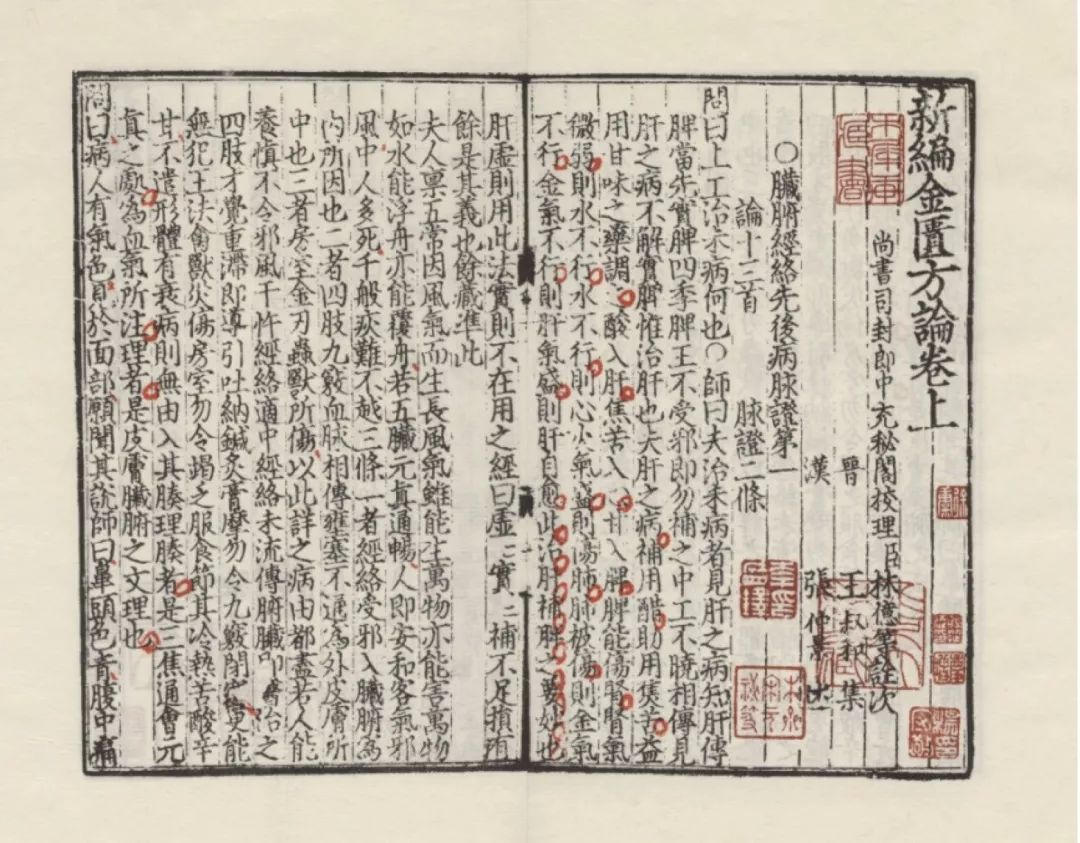 新編金匱方論卷上
尚書司封郎中充秘閣挍理臣林億等詮次
晉 王叔和 集
漢 張仲景
○臟腑經絡先後病脉證第一
論十三首 脉證二條
問曰上工治未病何也○師曰夫治未病者見肝之病知肝傳
脾當先實脾四季脾王不受邪即勿補之中工不曉相傳見
肝之病不解實脾惟治肝也夫肝之病補用酸助用焦苦益
用甘味之藥調之酸入肝焦苦入心甘入脾脾能傷腎腎氣
微弱則水不行水不行則心火氣盛則傷肺肺被傷則金氣
不行金氣不行則肝氣盛則肝自愈此治肝補脾之要妙也
肝虛則用此法實則不在用之經曰虛二實二補不足損有
餘是其義也餘藏準此
夫人禀五常因風氣而生長風氣雖能生萬物亦能害萬物
如水能浮舟亦能覆舟若五臟元真通暢人即安和客氣邪
風中人多死千般疢難不越三條一者經絡受邪入臟腑為
内所因也二者四肢九竅血脉相傳壅塞不通為外皮膚所
中也三者房室金刃蟲獸所傷以此詳之病由都盡若人能
養慎不令邪風干忤經絡適中經絡未流傳腑臟即醫治之
四肢才覺重滯即導引吐納鍼灸膏摩勿令九竅閉塞更能
無犯王法禽獸災傷房室勿令竭之服食節其冷熱苦酸辛
甘不遺形體有衰病則無由入其腠理腠者是三焦通會元
真之處為血氣所注理者是皮膚臟腑之文理也
問曰病人有氣色見於面部願聞其說師曰鼻頭色青腹中痛